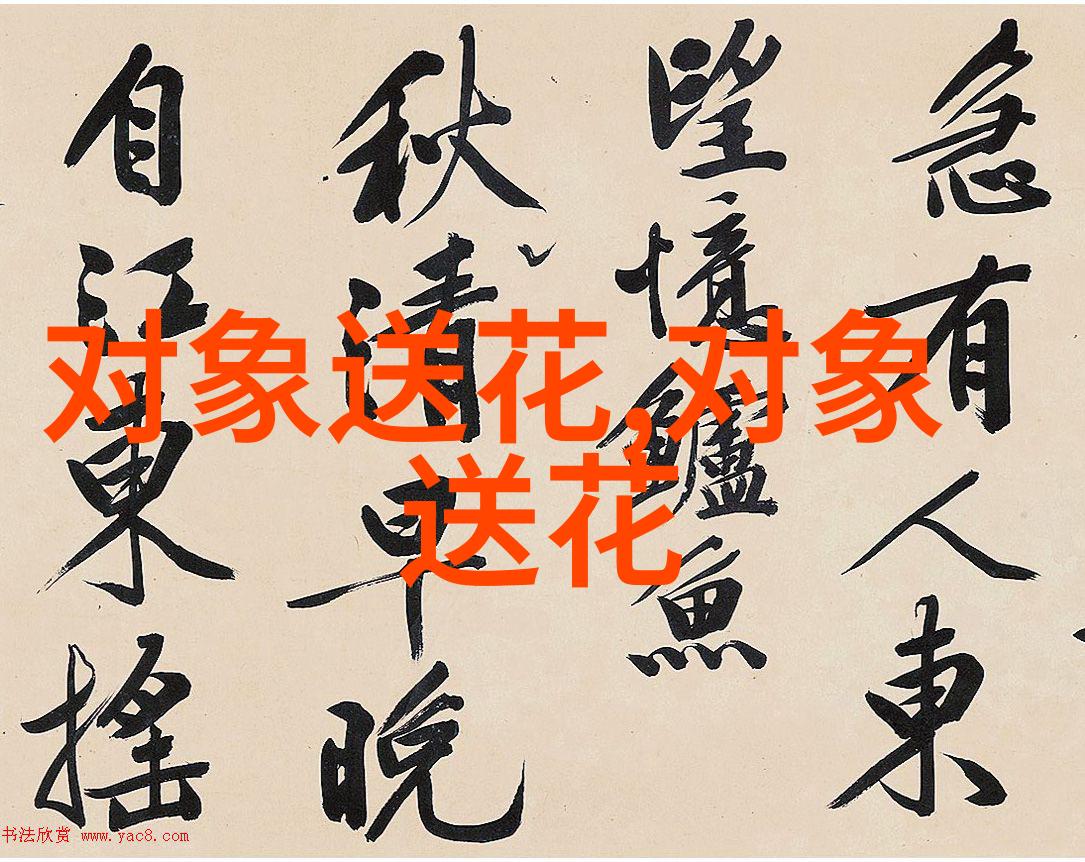 急有人東
望憶鱸魚
秋清早晚
自江東搖
对象送花,对象
送花
书法欣赏 www.yac8.com